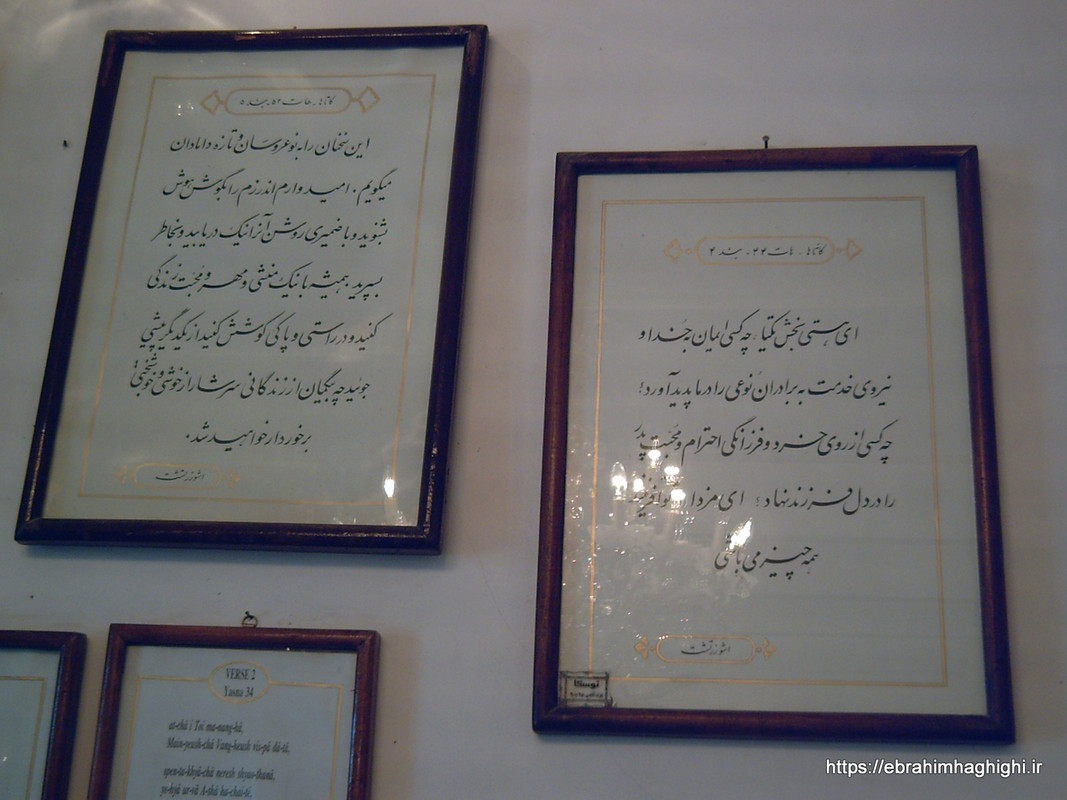 گاتاها - هات ۵۳ - بند ۵
این سخنان را به نوعروسان و تازه دامادان
میگویم، امیدوارم اندرزم را بگوش هوش
بشنوید و با ضمیری روشن آنرا نیک دریابید و بخاطر
بسپرید. همیشه با نیک منشی و مهر و محبت زندگی
کنید و در راستی و پاکی کوشش کنید از یکدیگر پیشی
جوئید چه بیگمان از زندگانی سرشار از خوشی و خوشبختی
برخوردار خواهید شد.
اشوزرتشت
گاتاها - هات ۴۴ - بند ۴
ای هستی بخش یکتا، چه کسی ایمان بخدا و
نیروی خدمت به برادران نوعی را در ما پدید آورد!
چه کسی از روی خرد و فرزانگی احترام و محبت پدر
را در دل فرزند نهاد! ای مزدا
همه چیز می باشی
اشوزرتشت
توسکا
VERSE 2
Yasna 34
at-châ i Toi ma-nang-hâ,
Main-yeush-châ Vang-heush vis-pâ dâ-tâ,
spen-ta-khyâ-châ neresh shyao-thanâ,
ye-hyâ ur-vâ A-shâ ha-chai-té,
https://ebrahimhaghighi.ir